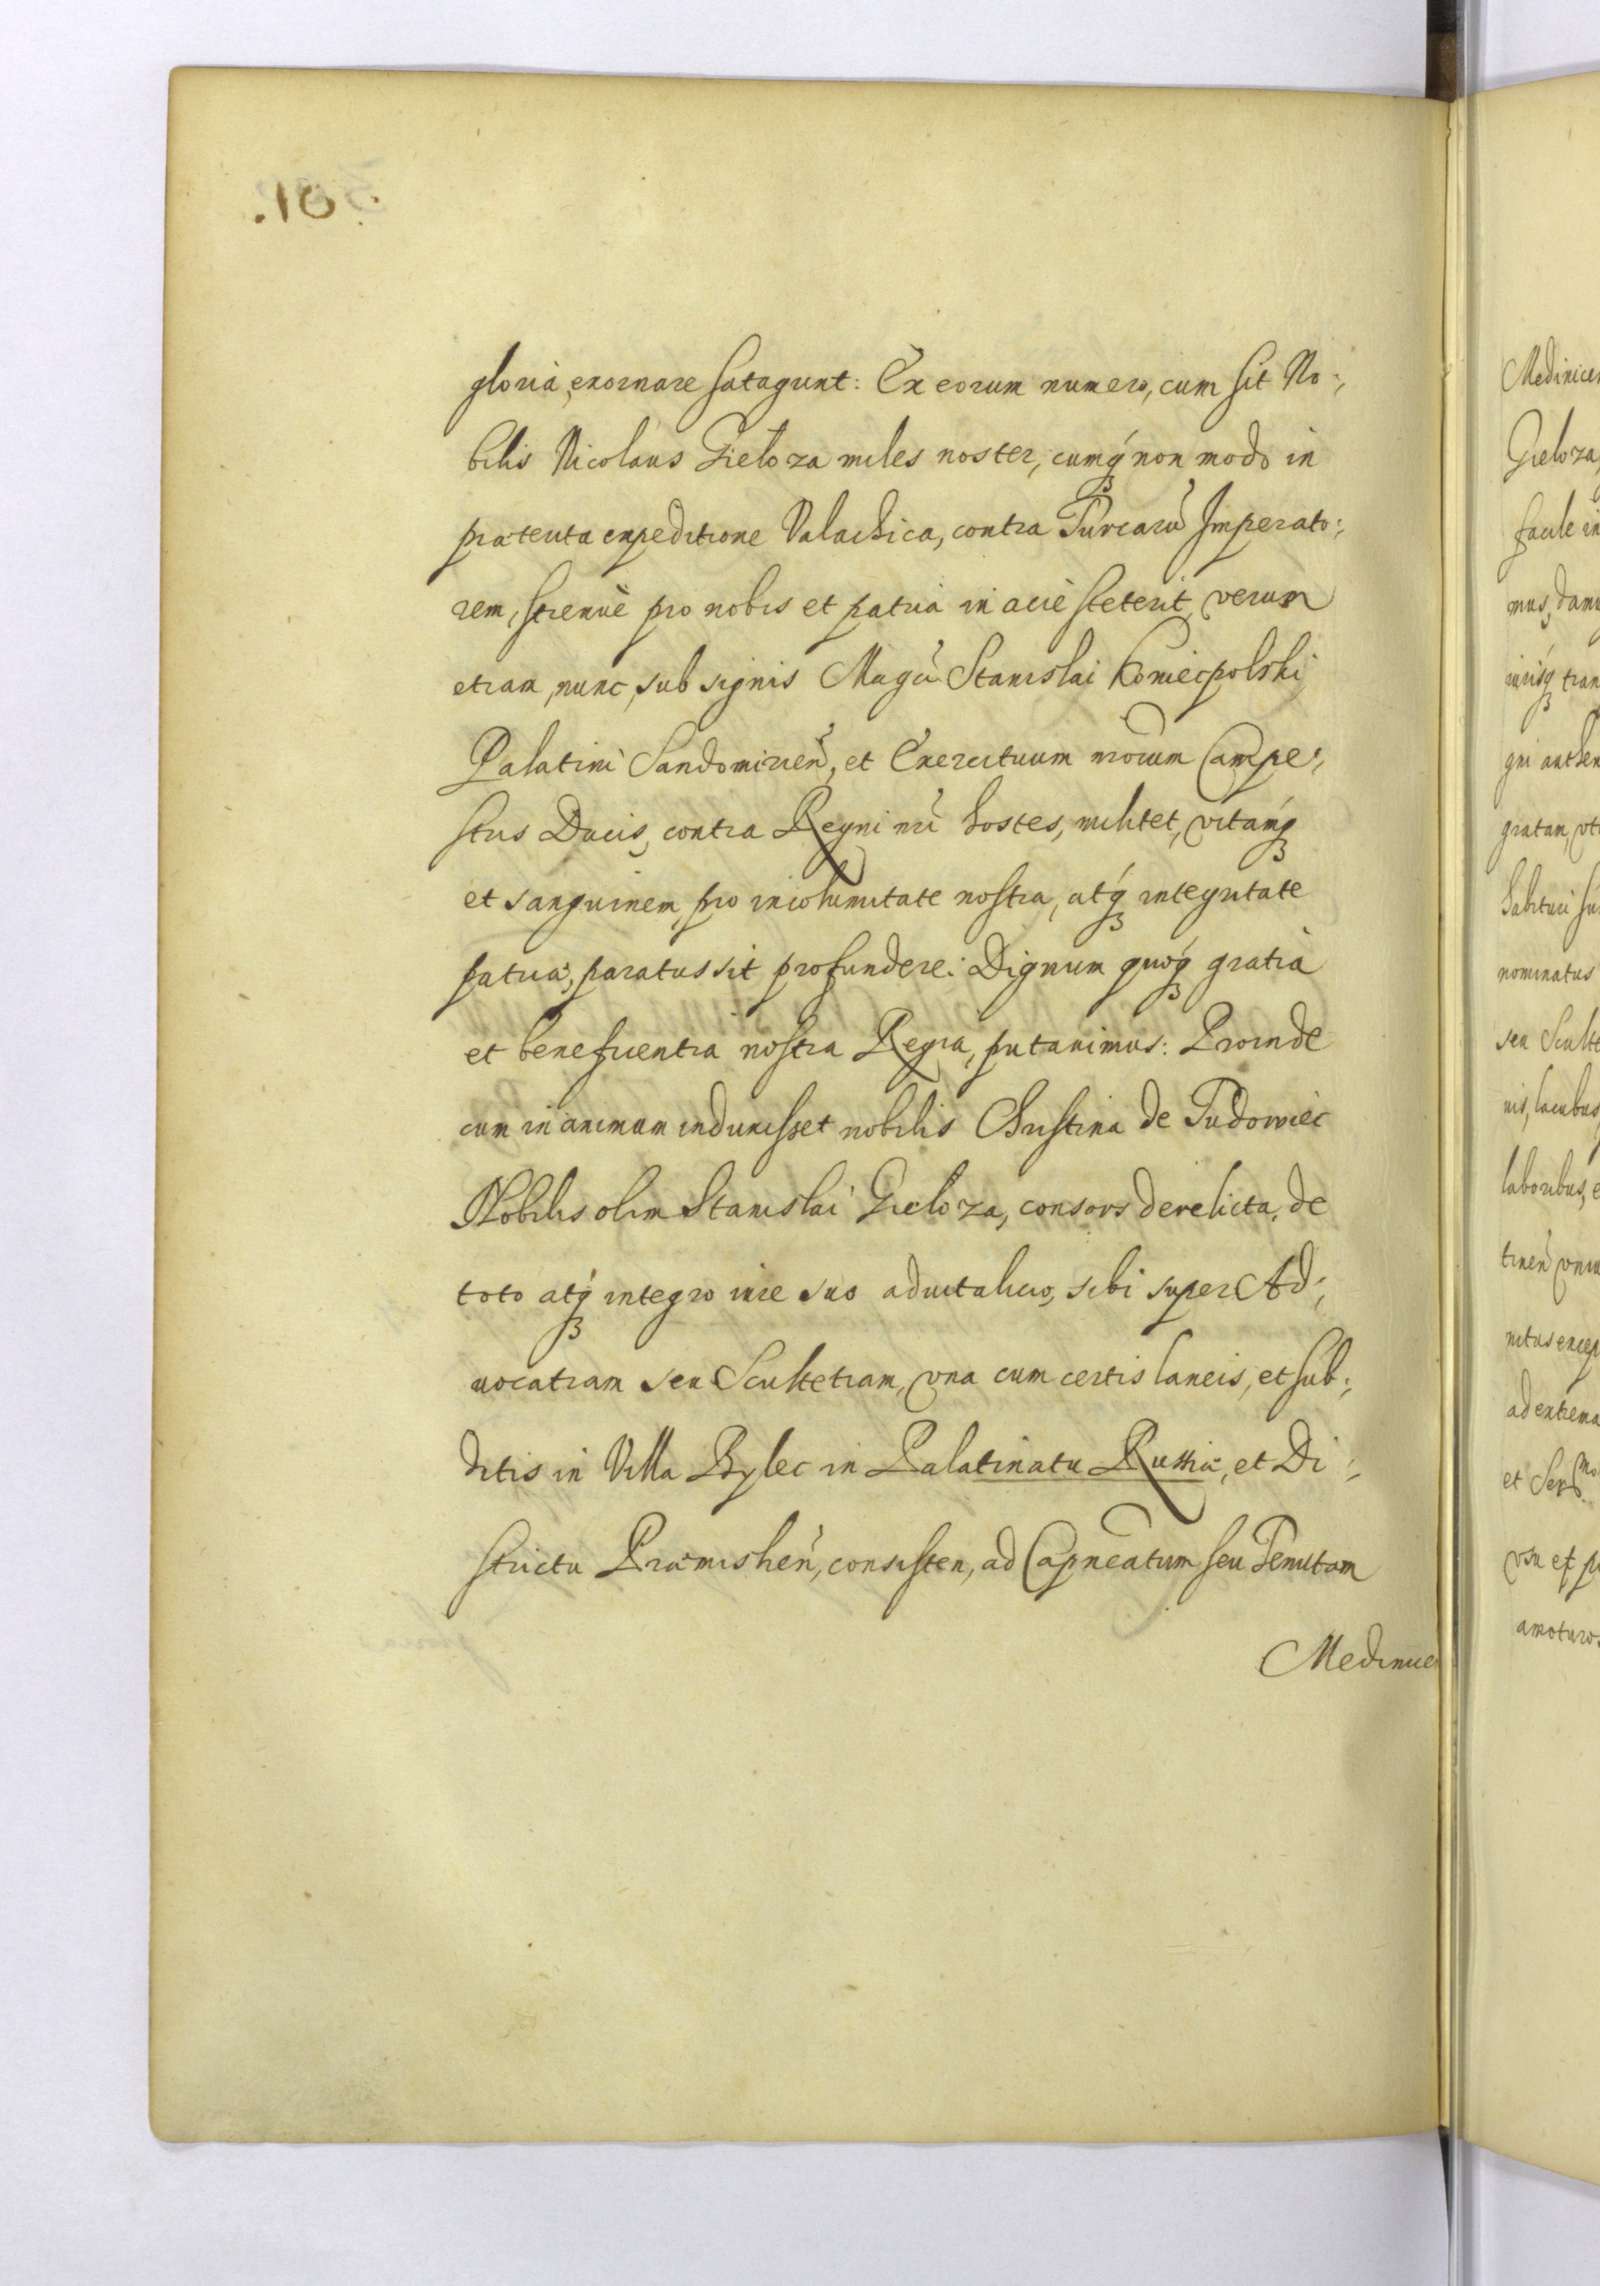 gloria, exornare satagunt: Ex eorum numero, cum sit No:,
bilis Nicolaus Gieloza miles noster, cumq́ non modo in
præterita expeditione Valachica, contra Turcarũ Imperato:,
rem, strenuè pro nobis et patria in acie steterit, verum
etiam, nunc, sub signis Magci Stanislai Koniecpolski
Palatini Sandomirień, et Exercituum nrorum Campe:,
stris Ducis, contra Regni nri hostes, militet, vitamq́
et sanguinem, pro incolumitate nostra, atq́ integritate
patriæ, paratus sit profundere: Dignum quoq́ gratia
et beneficentia nostra Regia, putauimus: Proinde
cum in animum induxisset nobilis Christina de Tudowiec
Nobilis olim Stanislai Gieloza, consors derelicta, de
toto atq́ integro iure suo aduitalicio, sibi super Ad:,
uocatiam seu Scultetiam, vna cum certis laneis, et sub:,
ditis in Villa Bylec in Palatinatu Russiæ, et Di:,
strictu Præmislień, consisten, ad Capneatum seu Tenutam
Medinice
Medinicen
Gieloza,
facile in
mus, damu
iurisq́ tran
gni authen
gratam, vti
habituri su
nominatus
seu Sculte
nis, lacubus
laboribus, e
tineń vniu
nitus excep
ad extrema
et Sere
vsu et p
amoturos